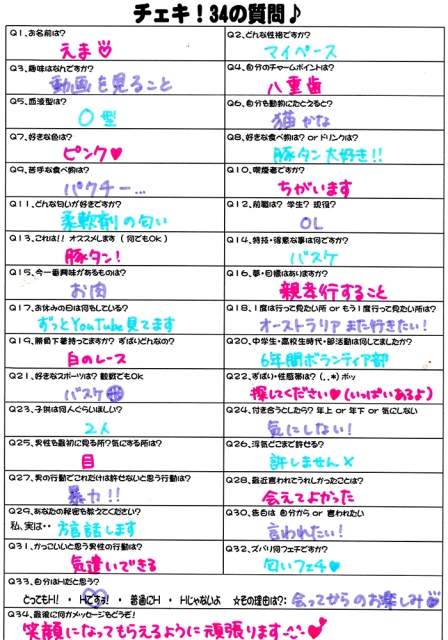 チェキ！34の質問♪
Q1、お名前は？
えま
Q2、どんな性格ですか？
マイペース
Q3、趣味はなんですか？
動画を見ること
Q4、自分のチャームポイントは？
八重歯
Q5、血液型は？
O型
Q6、自分を動物にたとえると？
猫かな
Q7、好きな色は？
ピンク♥
Q8、好きな食べ物は？ or ドリンクは？
豚タン大好き!!
Q9、苦手な食べ物は？
パクチー…
Q10、喫煙者ですか？
ちがいます
Q11、どんな匂いが好きですか？
柔軟剤の匂い
Q12、前職は？ 学生？ 現役？
OL
Q13、これは!! オススメします（何でもOk）
豚タン!
Q14、特技・得意な事は何ですか？
バスケ
Q15、今一番興味があるものは？
お肉
Q16、夢・目標はありますか？
親孝行すること
Q17、お休みの日は何をしている？
ずっとYouTube見てます
Q18、1度は行って見たい所 or もう1度行って見たい所は？
オーストラリアまた行きたい!
Q19、勝負下着持ってますか？ ずばりどんなの？
白のレース
Q20、中学生・高校生時代・部活動は何してましたか？
6年間ボランティア部
Q21、好きなスポーツは？ 観戦でもOK
バスケ
Q22、ずばり・性感帯は？（..*）ポッ
探してください♥(いっぱいあるよ)
Q23、子供は何人ぐらいほしい？
2人
Q24、付き合うとしたら？ 年上 or 年下 or 気にしない
気にしない!
Q25、男性を最初に見る所？気にする所は？
目
Q26、浮気どこまで許せる？
許しません×
Q27、男の行動でこれだけは許せないと思う行動は？
暴力!!
Q28、最近言われてうれしかったことは？
会えてよかった
Q29、あなたの秘密を教えてください？
私、実は・・ 方言話します
Q30、告白は 自分から or 言われたい
言われたい!
Q31、かっこいいと思う男性の行動は？
気遣いできる
Q32、ズバリ何フェチですか？
匂いフェチ♥
Q33、自分はHだと思う？
とってもH！ ・ Hですっ！ ・ 普通にH ・ Hじゃないよ ☆その理由は？: 会ってからのお楽しみ♥
Q34、最後に何かメッセージをどうぞ！
笑顔になってもらえるように頑張ります